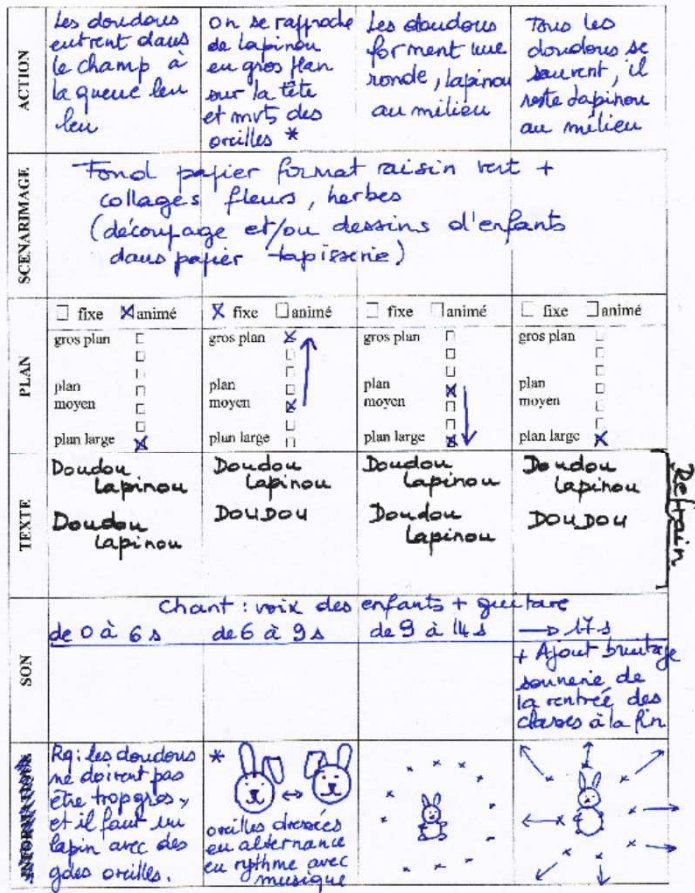 ACTION
Les doudous
entrent dans
le champ à
la queue leu
leu
On se rapproche
de Lapinou
en gros plan
sur la tête
et mvts des
oreilles *
Les doudous
forment une
ronde, lapinou
au milieu
Tous les
doudous se
sauvent, il
reste Lapinou
au milieu
SCENARIMAGE
Fond papier format raisin vert +
collages fleurs, herbes
(découpage et/ou dessins d'enfants
dans papier tapisserie)
PLAN
fixe animé
gros plan
plan
moyen
plan large
fixe animé
gros plan
plan
moyen
plan large
fixe animé
gros plan
plan
moyen
plan large
fixe animé
gros plan
plan
moyen
plan large
TEXTE
Doudou
Lapinou
Doudou
Lapinou
Doudou
Lapinou
DOUDOU
Doudou
Lapinou
Doudou
Lapinou
Doudou
Lapinou
DOUDOU
Refrain
SON
Chant : voix des enfants + guitare
de 0 à 6 s
de 6 à 9 s
de 9 à 14 s
→ 17 s
+ Ajout bruitage
sonnerie de
la rentrée des
classes à la fin
Rq : les doudous
ne doivent pas
être trop gros,
et il faut un
lapin avec des
gdes oreilles.
*
oreilles dressées
en alternance
en rythme avec
musique